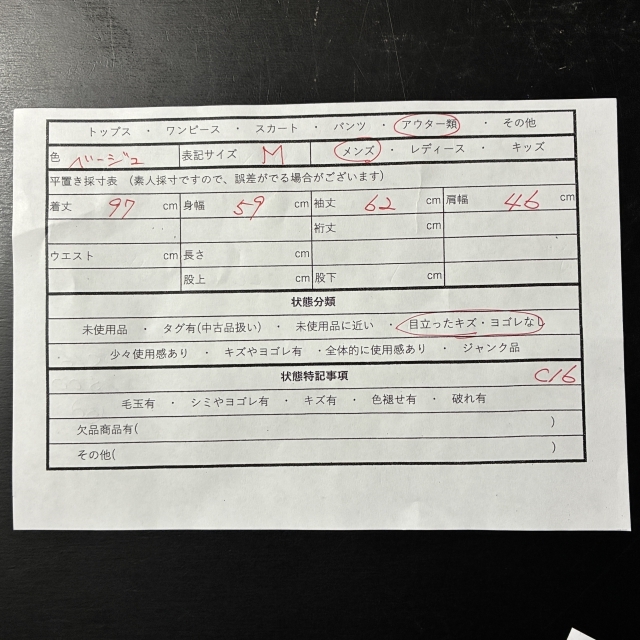 トップス ・ ワンピース ・ スカート ・ パンツ ・ アウター類 ・ その他
色 ベージュ 表記サイズ M メンズ ・ レディース ・ キッズ
平置き採寸表 (素人採寸ですので、誤差がでる場合がございます)
着丈 97 cm 身幅 59 cm 袖丈 62 cm 肩幅 46 cm
裄丈 cm
ウエスト cm 長さ cm
股上 cm 股下 cm
状態分類
未使用品 ・ タグ有(中古品扱い) ・ 未使用品に近い ・ 目立ったキズ・ヨゴレなし
・ 少々使用感あり ・ キズやヨゴレ有 ・全体的に使用感あり ・ ジャンク品
状態特記事項 C16
毛玉有 ・ シミやヨゴレ有 ・ キズ有 ・ 色褪せ有 ・ 破れ有
欠品商品有( )
その他( )